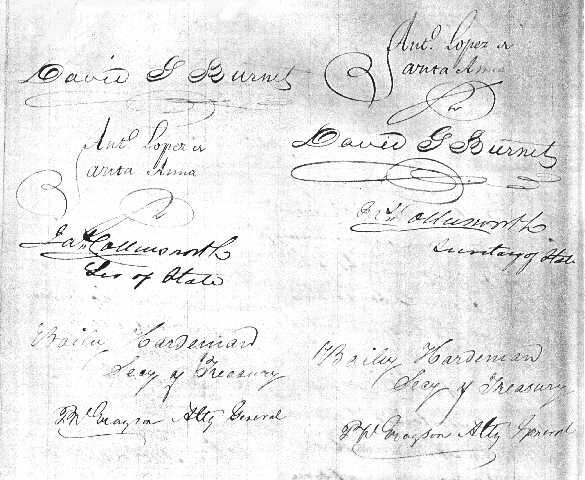 David G Burnet
Ant.º Lopez de
Santa Anna
Jas Collinsworth
Sec of State
Baily Hardeman
Secy of Treasury
P W Grayson Atty General
Ant.º Lopez de
Santa Anna
David G Burnet
Jas Collinsworth
Secretary of State
Baily Hardeman
Secy of Treasury
P W Grayson Atty General